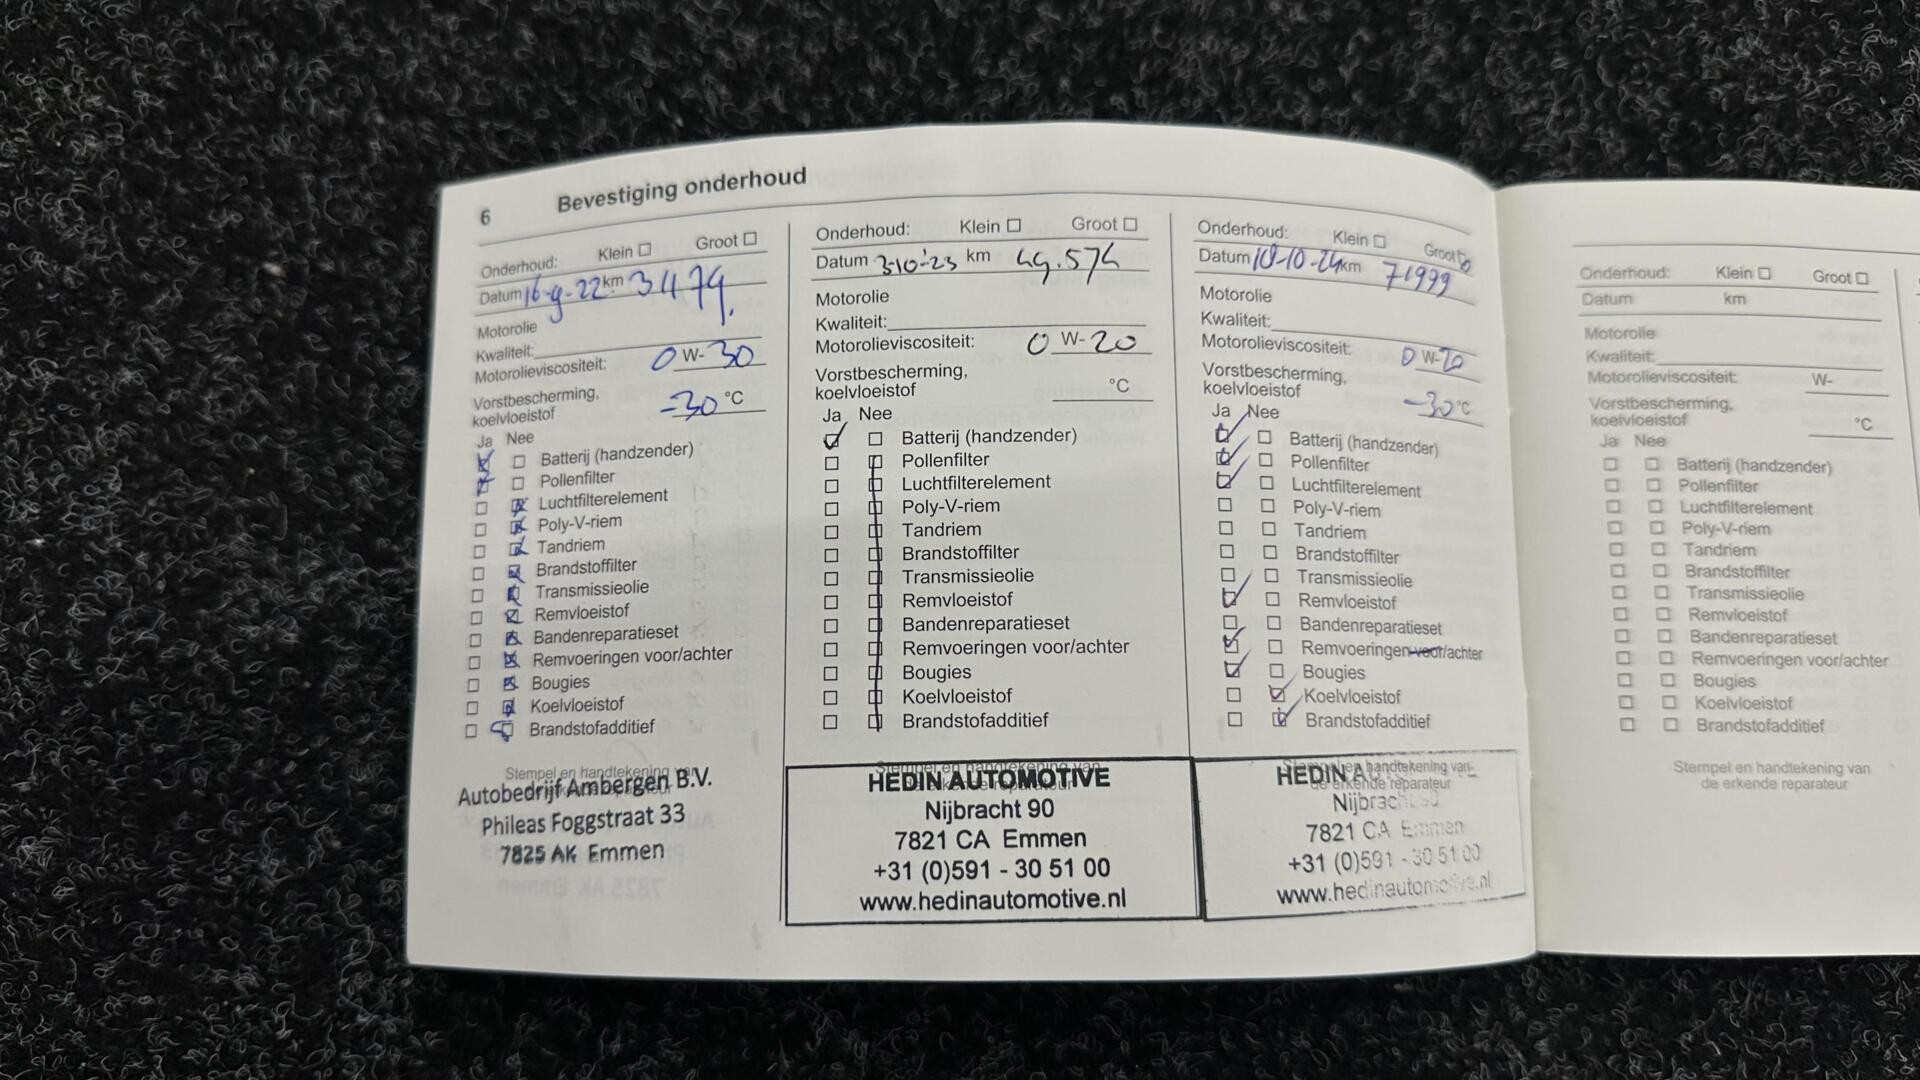 6 Bevestiging onderhoud
Onderhoud: Klein Groot
Datum 16-9-22 km 31179.
Motorolie
Kwaliteit:
Motorolieviscositeit: 0 W- 30
Vorstbescherming,
koelvloeistof -30 °C
Ja Nee
Batterij (handzender)
Pollenfilter
Luchtfilterelement
Poly-V-riem
Tandriem
Brandstoffilter
Transmissieolie
Remvloeistof
Bandenreparatieset
Remvoeringen voor/achter
Bougies
Koelvloeistof
Brandstofadditief
Stempel en handtekening van
Autobedrijf Ambergen B.V.
Phileas Foggstraat 33
7825 AK Emmen
Onderhoud: Klein Groot
Datum 3-10-'23 km 49.574
Motorolie
Kwaliteit:
Motorolieviscositeit: 0 W- 20
Vorstbescherming,
koelvloeistof °C
Ja Nee
Batterij (handzender)
Pollenfilter
Luchtfilterelement
Poly-V-riem
Tandriem
Brandstoffilter
Transmissieolie
Remvloeistof
Bandenreparatieset
Remvoeringen voor/achter
Bougies
Koelvloeistof
Brandstofadditief
Stempel en handtekening van
HEDIN AUTOMOTIVE
Nijbracht 90
7821 CA Emmen
+31 (0)591 - 30 51 00
www.hedinautomotive.nl
Onderhoud: Klein Groot
Datum 10-10-24 km 71999
Motorolie
Kwaliteit:
Motorolieviscositeit: 0 W- 20
Vorstbescherming,
koelvloeistof -30 °C
Ja Nee
Batterij (handzender)
Pollenfilter
Luchtfilterelement
Poly-V-riem
Tandriem
Brandstoffilter
Transmissieolie
Remvloeistof
Bandenreparatieset
Remvoeringen voor/achter
Bougies
Koelvloeistof
Brandstofadditief
Stempel en handtekening van
de erkende reparateur
HEDIN
Nijbracht 90
7821 CA Emmen
+31 (0)591 - 30 51 00
www.hedinautomotive.nl
Onderhoud: Klein Groot
Datum km
Motorolie
Kwaliteit:
Motorolieviscositeit: W-
Vorstbescherming,
koelvloeistof °C
Ja Nee
Batterij (handzender)
Pollenfilter
Luchtfilterelement
Poly-V-riem
Tandriem
Brandstoffilter
Transmissieolie
Remvloeistof
Bandenreparatieset
Remvoeringen voor/achter
Bougies
Koelvloeistof
Brandstofadditief
Stempel en handtekening van
de erkende reparateur